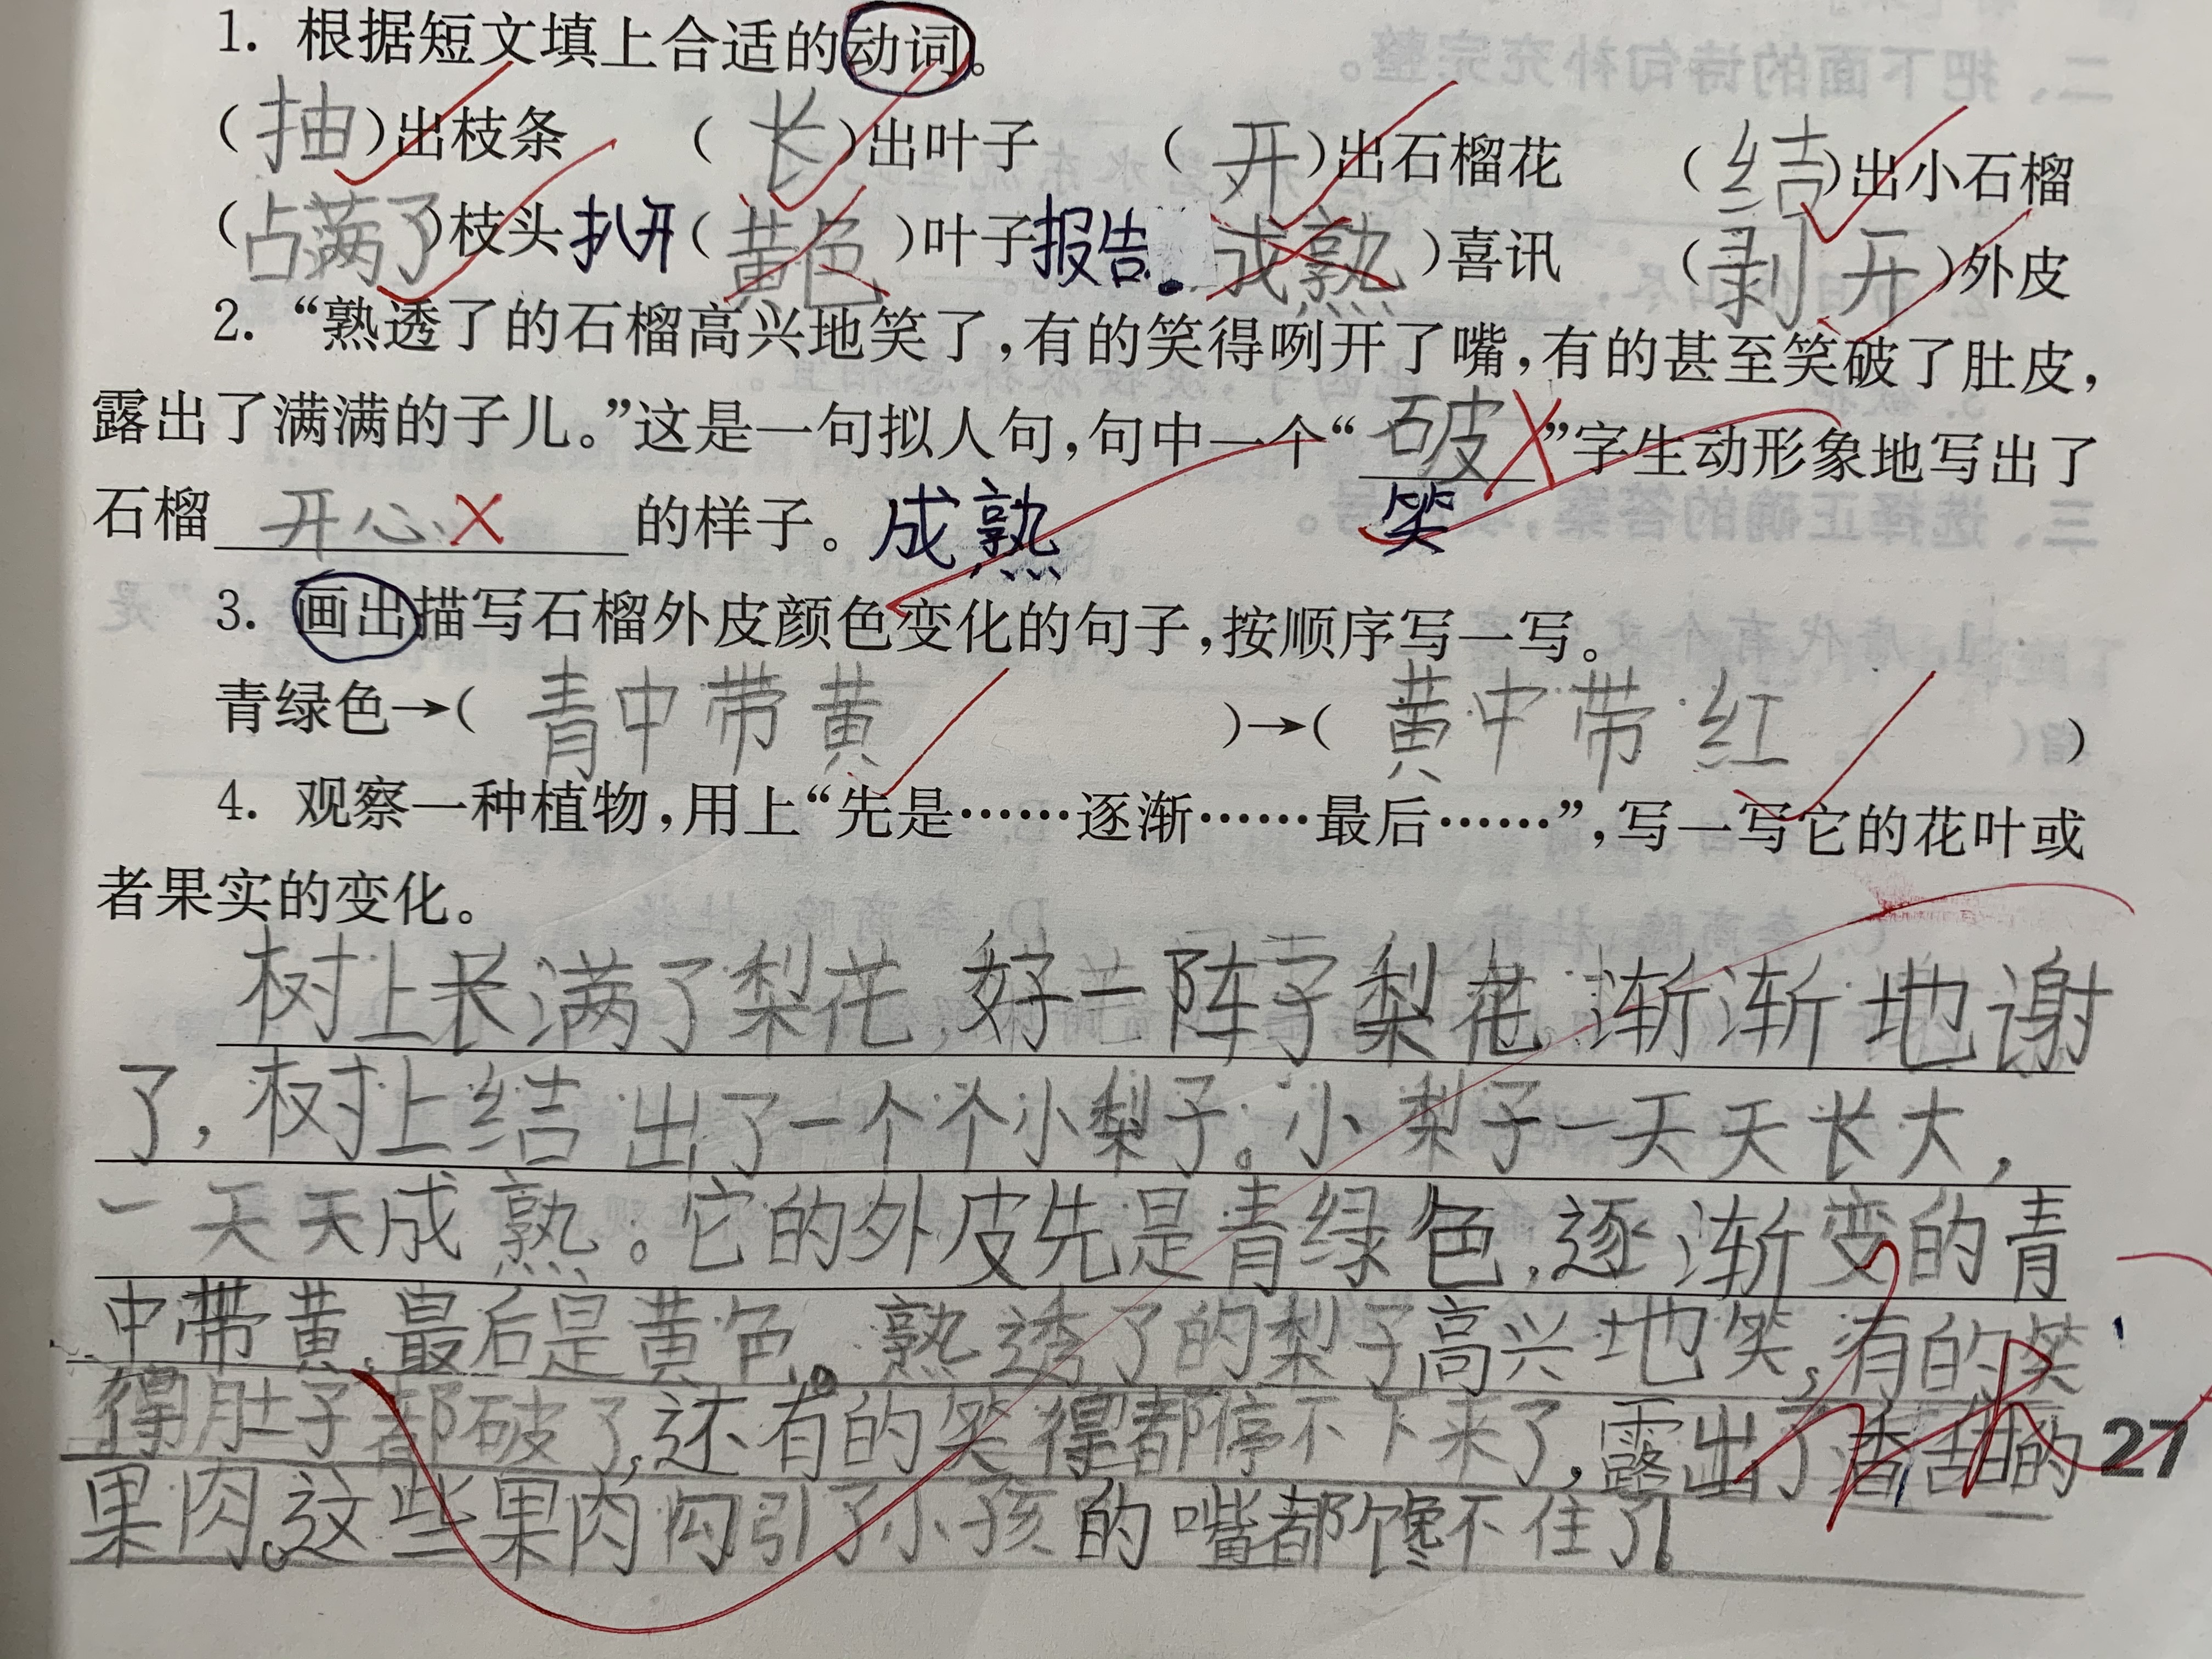 1. 根据短文填上合适的动词。
(抽)出枝条 (长)出叶子 (开)出石榴花 (结)出小石榴
(占满了)枝头 扒开(黄色)叶子 报告(成熟)喜讯 (剥开)外皮
2. “熟透了的石榴高兴地笑了,有的笑得咧开了嘴,有的甚至笑破了肚皮,
露出了满满的子儿。”这是一句拟人句,句中一个“破”字生动形象地写出了
笑
石榴开心的样子。成熟
3. 画出描写石榴外皮颜色变化的句子,按顺序写一写。
青绿色→(青中带黄)→(黄中带红)
4. 观察一种植物,用上“先是……逐渐……最后……”,写一写它的花叶或
者果实的变化。
树上长满了梨花,好一阵子梨花渐渐地谢
了,树上结出了一个个小梨子。小梨子一天天长大,
一天天成熟。它的外皮先是青绿色,逐渐变的青
中带黄,最后是黄色。熟透了的梨子高兴地笑,有的笑
得肚子都破了,还有的笑得都停不下来了,露出了香甜的
果肉。这些果肉勾引了小孩的嘴都馋不住了。
27